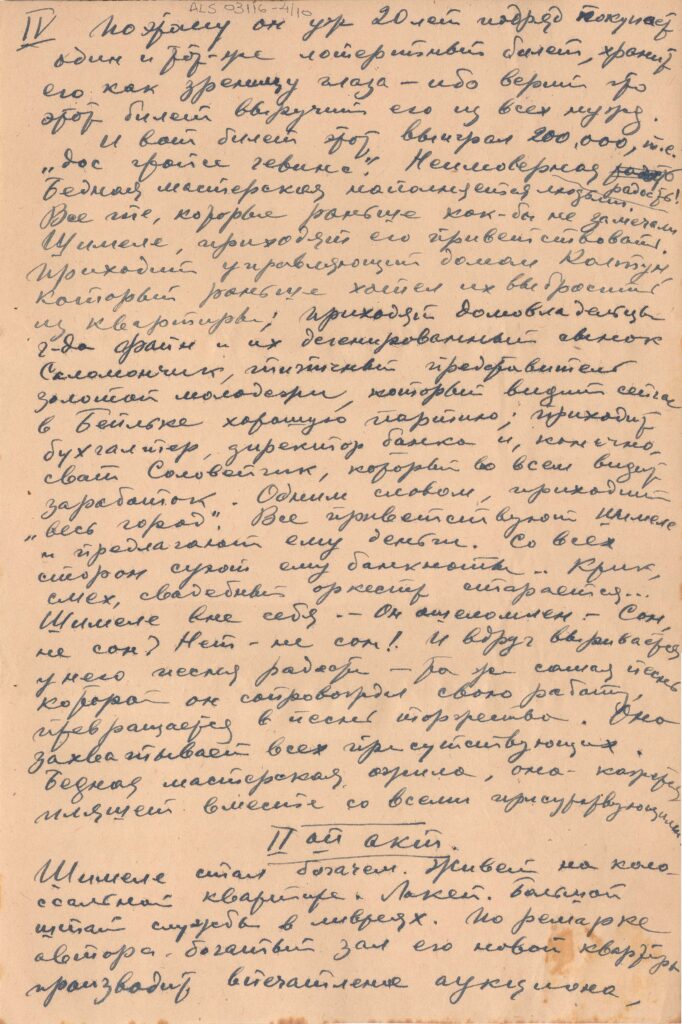 ALS 03116-4/10
IV Поэтому он уж 20 лет подряд покупает
один и тот-же лотерейный билет, хранит
его как зреницу глаза – ибо верит что
этот билет выручит его из всех нужд.
И вот билет этот выиграл 200.000, т.е.
„дос гройсе гевинс". Неимоверная радость!
Бедная мастерская наполняется людьми.
Все те, которые раньше как-бы не замечали
Шимеле, приходят его приветствовать.
Приходит управляющий домом Колтун,
который раньше хотел их выбросить
из квартиры; приходят домовладельцы
г-да Файн и их дегенированный сынок
Соломончик, типичный представитель
золотой молодежи, который видит сейчас
в Бейльке хорошую партию; приходит
бухгалтер, директор банка и, конечно,
сват Соловейчик, который во всем видит
заработок. Одним словом, приходит
„весь город". Все приветствуют Шимеле
и предлагают ему деньги. Со всех
сторон сунут ему банкноты.. Крик,
смех, свадебный оркестр старается...
Шимеле вне себя. – Он ошеломлен. – Сон,
не сон? Нет – не сон! И вдруг вырывается
у него песня радости – та же самая песнь
которой он сопровождал свою работу,
превращается в песнь торжества. Она
захватывает всех присутствующих.
Бедная мастерская ожила, она – кажется
пляшет вместе со всеми присутствующими.
II ой акт.
Шимеле стал богачем. Живет на коло-
ссальной квартире. Лакей. Большой
штат службы в ливреях. По ремарке
автора – богатый зал его новой квартиры
производит впечатление аукциона,